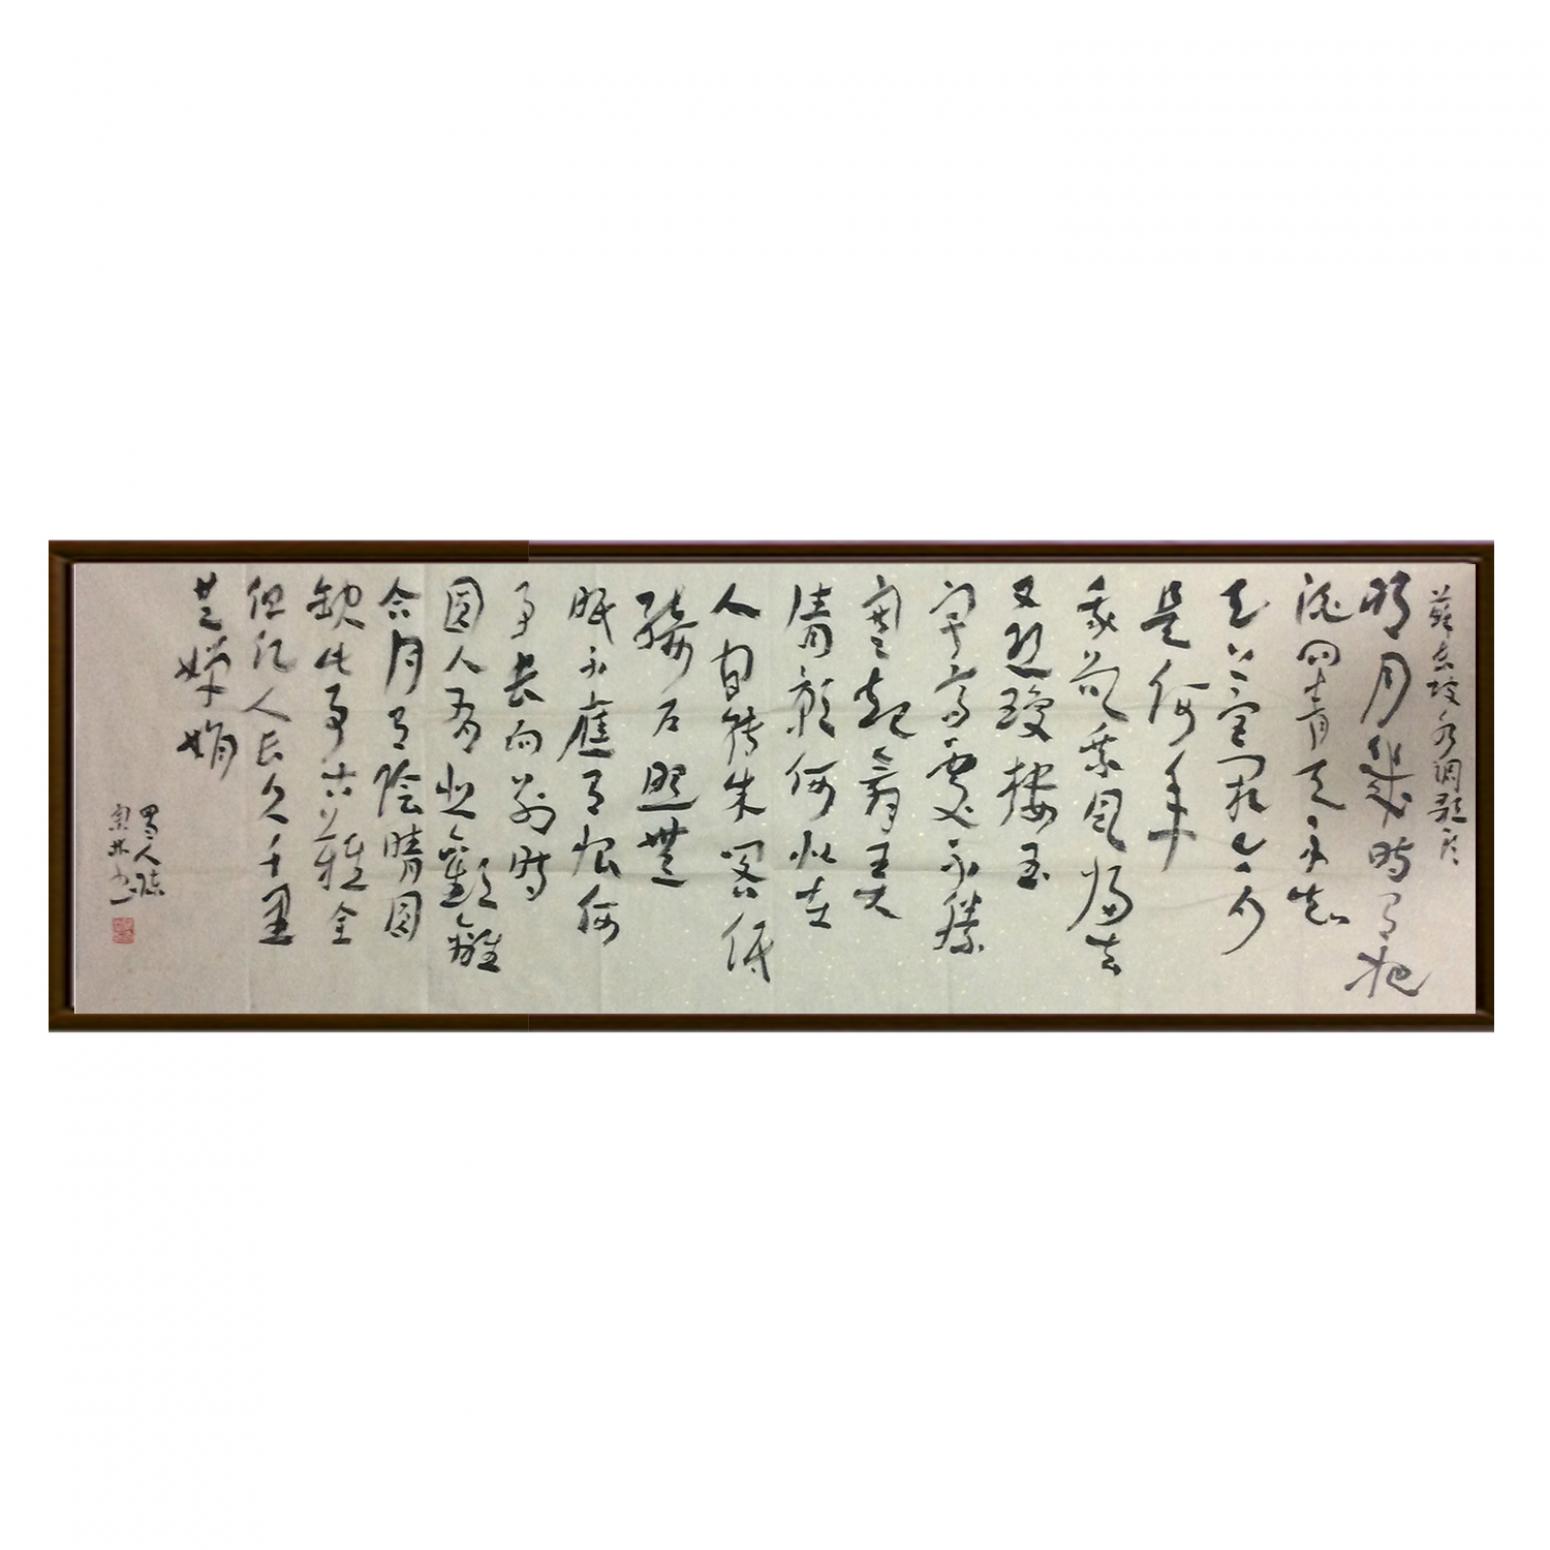 蘇東坡水調歌頭
明月幾時有把
酒問青天不知
天上宮闕今夕
是何年
我欲乘風歸去
又恐瓊樓玉
宇高處不勝
寒起舞弄
清影何似在
人間轉朱閣低
綺戶照無
眠不應有恨何
事長向別時
圓人有悲歡離
合月有陰晴圓
缺此事古難全
但願人長久千里
共嬋娟
蜀人陈
宗林书